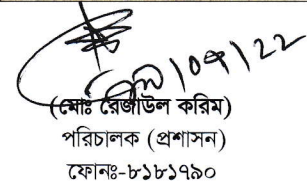 (মোঃ রেজাউল করিম)
পরিচালক (প্রশাসন)
ফোনঃ-৮১৮১৭৯০